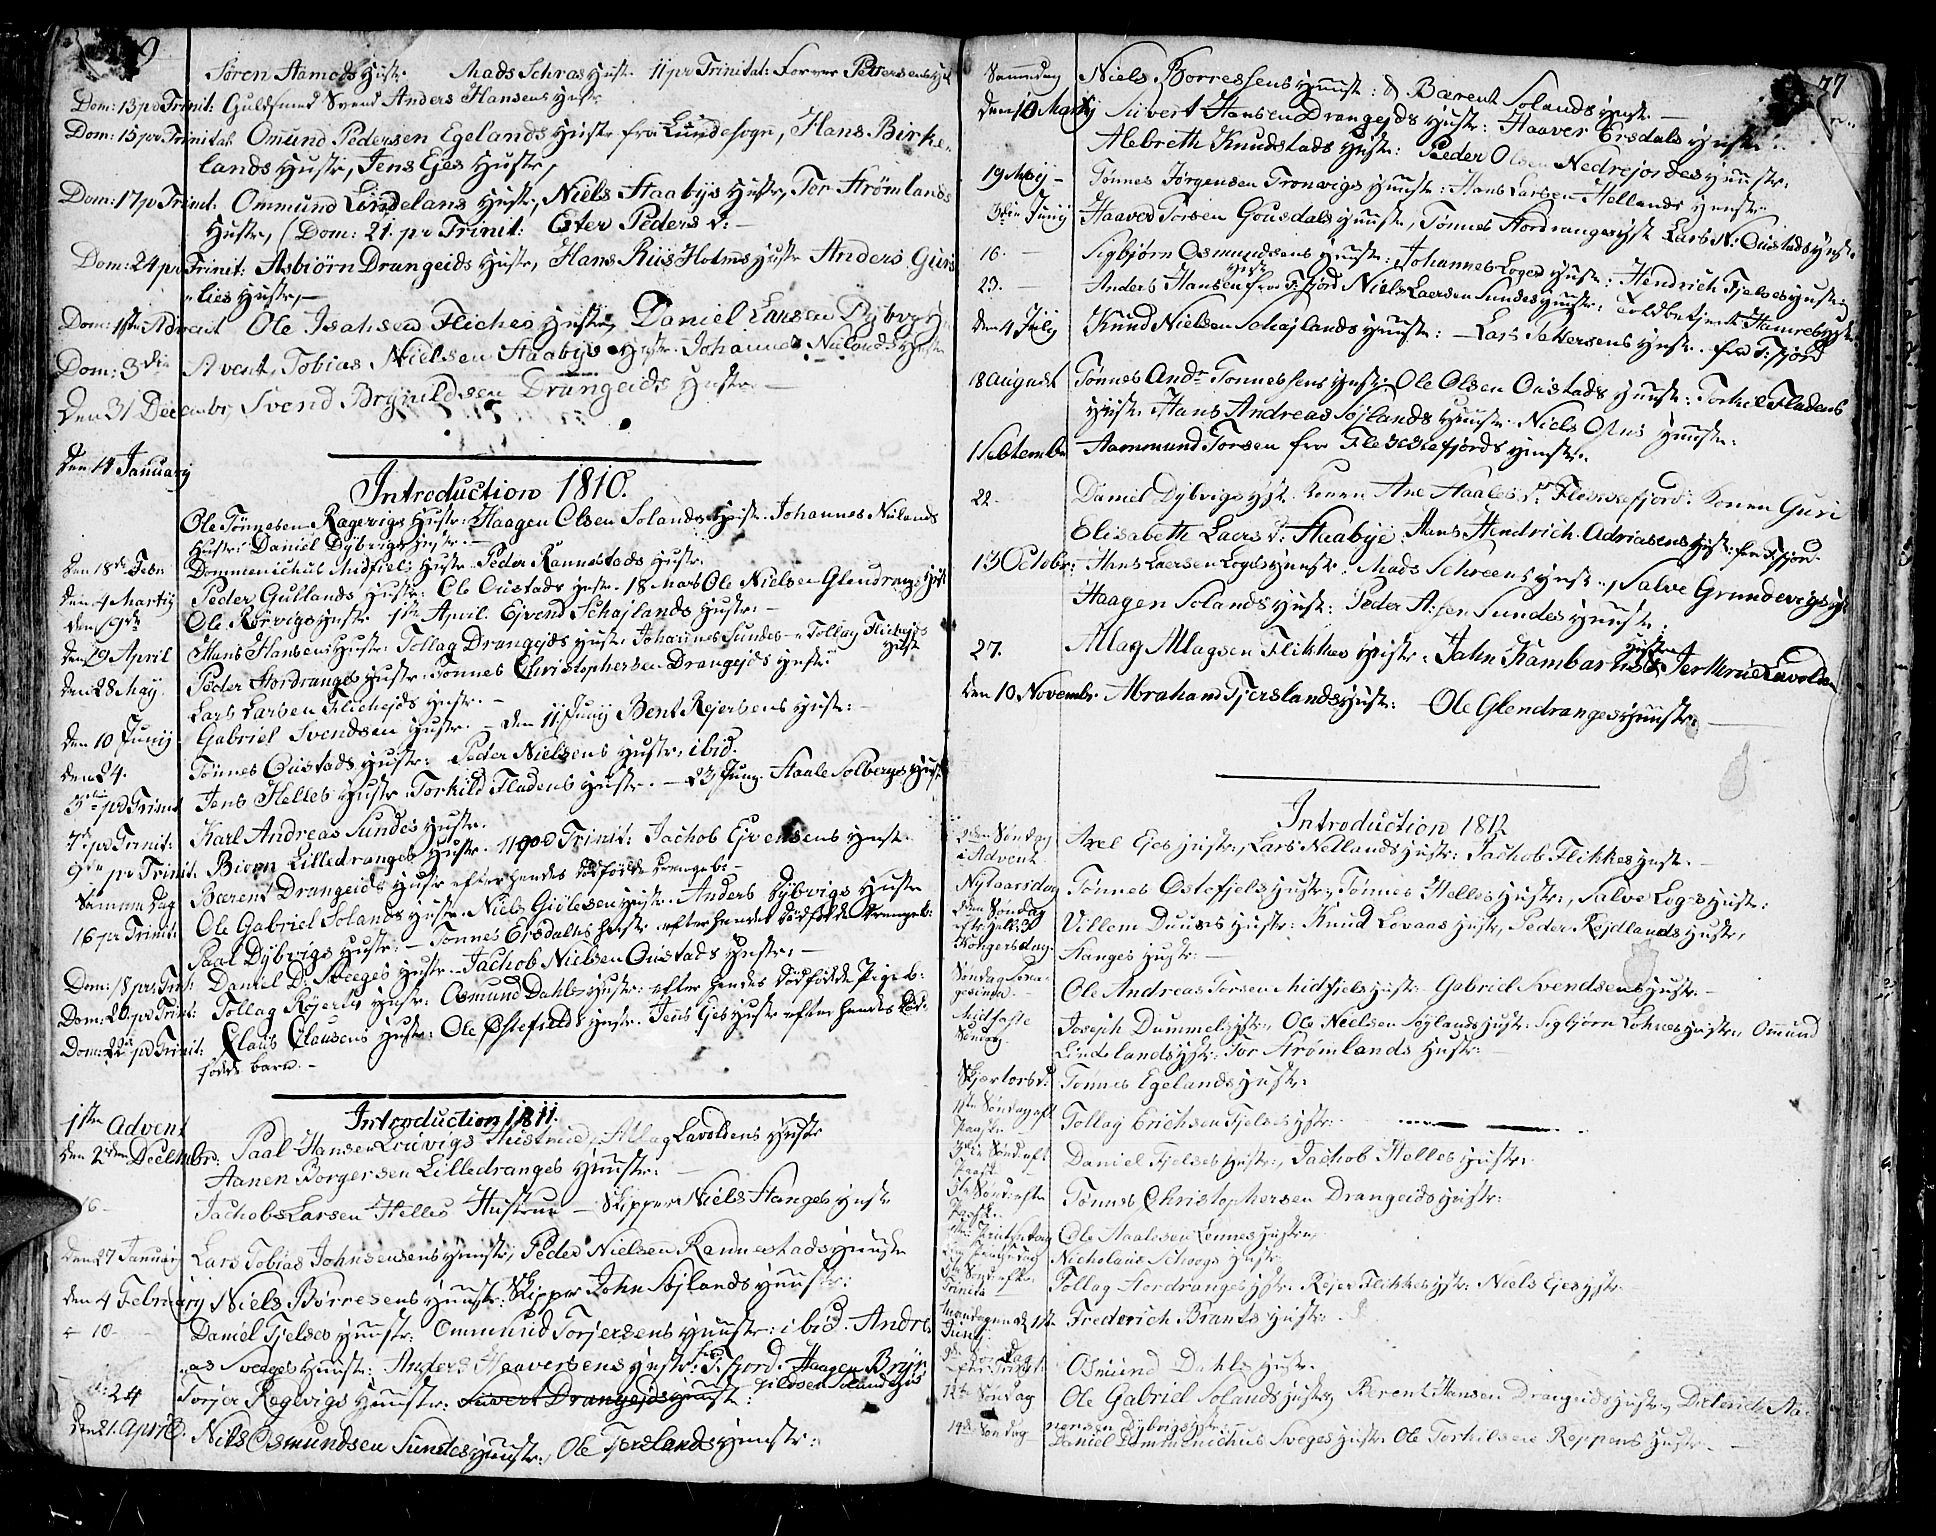 Søren Stameds Hustr. Mads Schras Hustr. 11 pr Trinitat: Petersens Hustr
Dom: 13 p Trinit: Guldsmed Svend Anders Hansens Hustr
Dom: 15 pr Trinitat. Omund Pedersen Egelands Hustr fra Lunde sogn, Hans Birke-
lands Hustr, Jens Eges Hustr,
Dom: 17 p Trinit. Ommund Lindelans Hustr, Niels Staabyes Hustr, Tor Strømlands
Hustr, (Dom: 21. pr Trinit: Ester Peders d: -
Dom: 24 pr Trinit: Asbiørn Drangeids Hustr, Hans Riis Holms Hustr Anders Gurs
lies Hustr, -
Dom: 1ste Advent Ole Isachsen Fliches Hustr, Daniel Larsen Dybvigs
Dom: 3die Avent, Tobias Nielsen Staabys Hustr Johannes Nulands Hustr
Den 31 Decembr Svend Brynildsen Drangeids Hustr. -
Den 14 January
Introduction 1810.
Ole Tønnesen Ragevigs Hustr: Haagen Olsen Solands Hustr. Johannes Nulands
Hustr: Daniel Dybvigs Hustr. -
Den 18de Febr Dommenichus Midfiels Hustr Peder Rannestads Hustr.
Den 4 Martij Peder Gullands Hustr: Ole Oustads Hustr. 18 Mars Ole Nielsen Glendrangs Hustr
Den Ole Rørvigs Hustr 1ste April. Ejvend Schajlands Hustr: -
Den 29 April Hans Hansens Hustr. Tollag Drangejds Hustr Johannes Sundes - Tollag Flichejds Hustr
Den 28 May. Peder Hordranges Hustr. Tønnes Christophersen Drangejds Hustr:
Lars Larsen Flichejds Hustr. -
Den 10 Junij Gabriel Svendsen Hustr. - Den 11 Junij Bent Rejersens Hustr: -
Den 24. Tønnes Oustads Hustr: Peder Nielsens Hustr. ibid.
3die pd Trinit Jens Helles Hustr. Torkild Fladens Hustr. - 23 Juny. Staale Solbergs Hustr
7de pd Trinit: Karl Andreas Sundes Hustr.
9de pr Trinit. Biørn Lilledranges Hustr. 11 pd Trinit: Jachob Ejvensens Hustr.
Samme Dag Bærent Drangeids Hustr efter hendes dødfødde Drengeb: -
16 pr Trinit: Ole Gabriel Solands Hustr. Niels Giølesen Hustr. Anders Dybvigs Hustr
Paal Dybvigs Hustr: - Tønnes Ersdals Hustr efter hendes dødfødde Drengeb:
Dom: 18 pr Trin: Daniel D: Sveeges Hustr. Jachob Nielsen Oustads Hustr: -
Dom: 20 pd Trinit: Tollag Røjerts Hustr: Osmund Dahls Hustr: efter hendes dødfødde Pigeb:
Dom: 22 pd Trinit: Claus Clausens Hustr: Ole Østefields Hustr. Jens Ejes Hustr efter hendes død-
fødde barn. -
Introduction 1811.
1ste Advent Paal Hansen Hustrue, Atlag Lavoldens Hustr
Den 2den Decembr: Aanen Borgersen Lilledranges Hustr: -
16 - Jachob Larsen Helles Hustrue - Skipper Niels Stanges Hustr
Den 27 Januar Lars Tobias Johnsensens Hustr, Peder Nielsen Rannestads Hustr
Den 4 February Niels Børresens Hustr: Skipper John Søjlands Hustr:
- 10. - Daniel Fjelses Hustr: Ommund Torjersens Hustr: ibid. Andre-
as Sveeges Hustr: Anders Haaversens Hustr: fra F.fjord. Haagen Bryn-
ildsen Solands Hus
24 Torjer Regevigs Hustr: Sivert Drangejds Hustr:
Den 21. April. Niels Osmundsen Sundes Hustr, Ole Tjerslands Hustr:
77
Sammedag Niels Børresens Hustr: & Bærent Solands Hustr. -
Den 10 Martij Sivert Hansen Drangejds Hustr: Haaver Ersdals Hustr:
Alebreth Knudstads Hustr: Peder Olsen Nedrejordes Hustr:
19 Maij - Tønnes Jørgensen Tronvigs Hustr: Hans Larsen Hellands Hustr:
3die Junij Haaver Torsen Gousdals Hustr, Tønnes Hordranges Hustr Lars N: Oustads Hustr
16. - Sigbjørn Osmundsens Hustr: Johannes Loges Hustr: Hendrich Fjelses Hustr:
23. - Anders Hansen Hustr fra F.fjord Niels Laersen Sundes Hustr: Toldbetjent Hamres Hustr
Den 4 July Knud Nielsen Schajlands Hustr: - Lars Pettersens Hustr. fra F:fjord
18 August Tønnes Andr Tønnessens Hustr: Ole Olsen Oustads Hustr: Torkel Fladens
Hustr. Hans Andreas Søjlands Hustr. Niels Hustr:
1 Septembr Aammund Torsen fra Flecchefjords Hustr.
22. Daniel Dybvigs Hustr. Konen Ane Staales dr Flecchefjord: Konen Guri
Elisabeth Laers d: Staabye: Hans Hendrich Adriasens Hustr: fra F:fjord
13 October: Hans Laersen Loges Hustr. Mads Schreens Hustr, Salve Grundevigs Hustr
Haagen Solands Hustr: Peder A:sen Sundes Hustr:
27. Atlag Atlagsen Flikkes Hustr: Jahn Kambar Hustrue
Den 10 Novembr. Abraham Tjerslands Hustr: Ole Glendranges Hustr: -
Introduction 1812
2den Søndag i Advent Axel Ejes Hustr, Lars Netlands Hustr: Jachob Flikkes Hustr. -
Nytaarsdag Tønnes Østefjels Hustr, Tønnes Helles Hustr, Salve Loges Hustr:
Villem Duuses Hustr: Knud Lovaas Hustr, Peder Rejdlands Hustr,
Stanges Hustr: -
Søndag Sexagesima Ole Andreas Torsen Midfiels Hustr - Gabriel Svendsens Hustr. -
Midfaste Søndag. Joseph Dummels Hustr, Ole Nielsen Søjlands Hustr: Sigbjørn Lohnes Hustr, Omund
Lindelands Hustr: Tor Strømlands Hustr: -
Skjærtorsd: Tønnes Egelands Hustr:
1ste Søndag eft Paaske Tollag Erichsen Fjelses Hustr:
Daniel Fjelses Hustr, Jachob Helles Hustr:
Tønnes Christophersen Drangeids Hustr:
Ole Staalesen Lennes Hustr,
Nicholaus Schoogs Hustr.
Tollag Hordranges Hustr. Rejer Flikkes Hustr: Niels Ejes Hustr.
Frederich Brants Hustr.
Osmund Dahls Hustr.
12te Søndag Ole Gabriel Solands Hustr, Berent Hansen Drangeids Hustr, Diderich Aa-
nensen Dybvigs Hustr:
19de Søndag Daniel Dommenichus Sveges Hustr. Ole Torkilsen Reppens Hustr. -